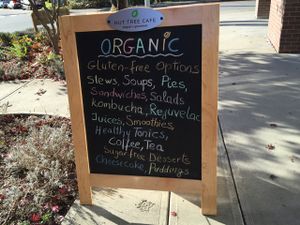 NUT TREE CAFE
ORGANIC
Gluten-free Options
Stews, Soups, Pies,
Sandwiches, Salads
Kombucha, Rejuvelac
Juices, Smoothies,
Healthy Tonics,
Coffee, Tea
Sugar free Desserts
Cheesecake, Puddings